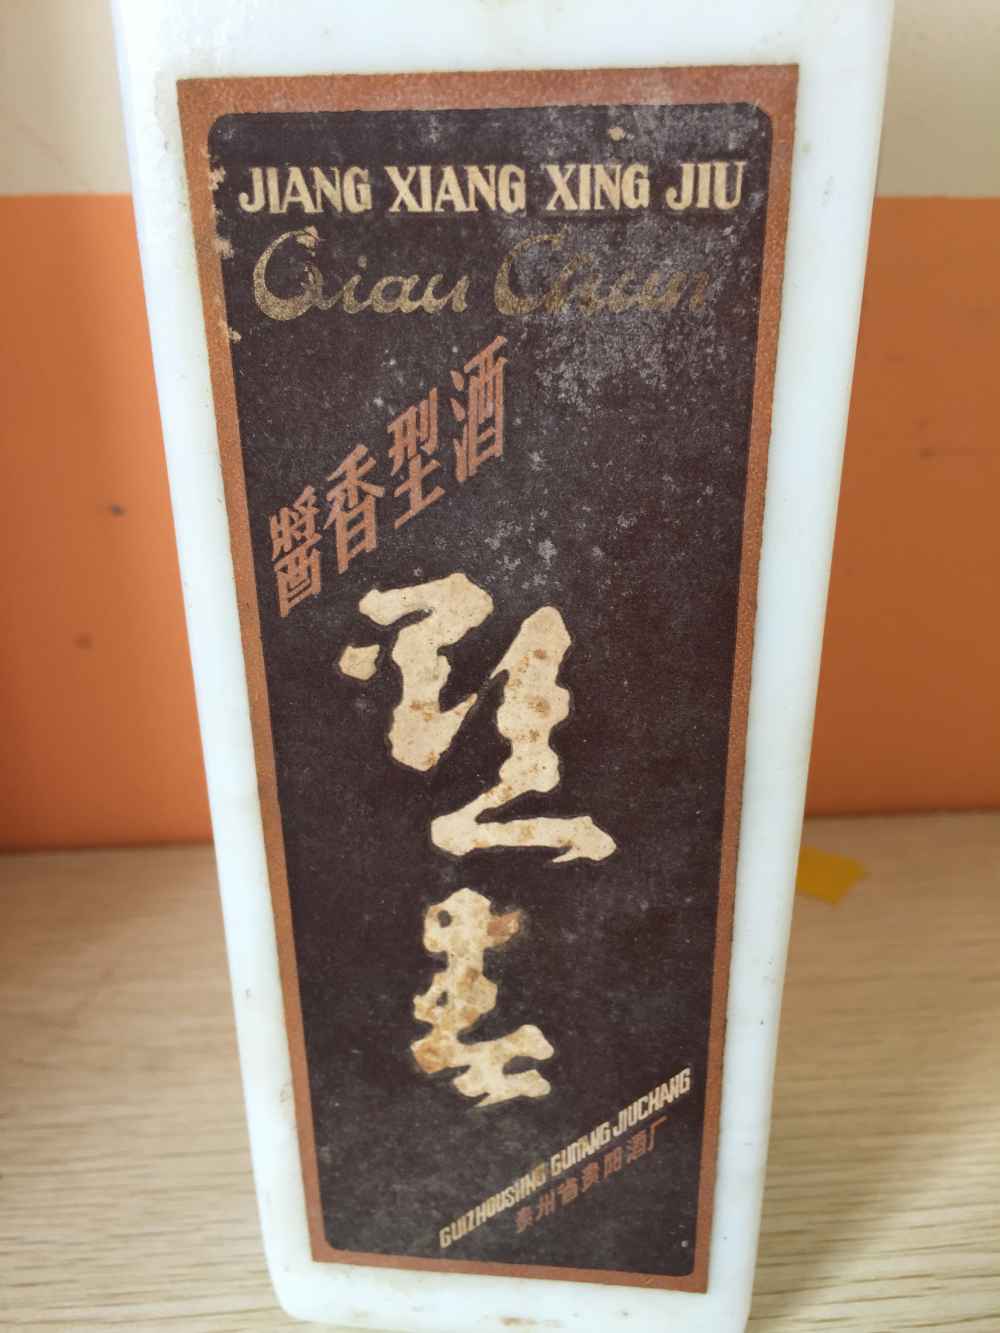 JIANG XIANG XING JIU
Qian Chun
醬香型酒
黔春
GUIZHOUSHNG GUIYANG JIUCHANG
贵州省贵阳酒厂